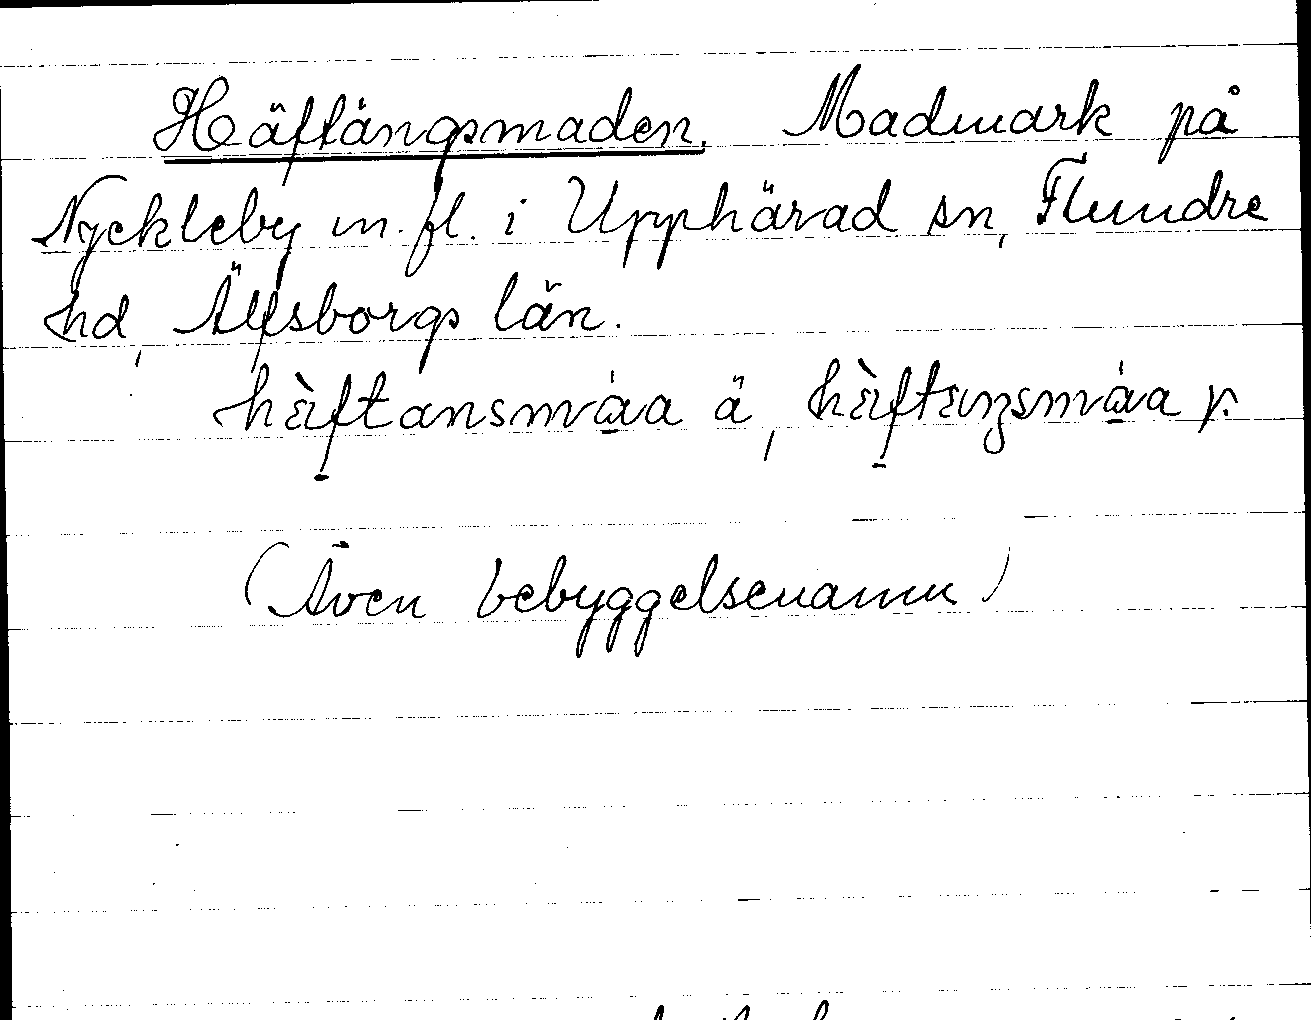 Häftängsmaden. Madmark på
Nyckleby m. fl. i Upphärad sn, Flundre
hd, Älfsborgs län.
hæ̀ftansmáa ä, hæ̀ftæŋsmáa y.
(Även bebyggelsenamn)